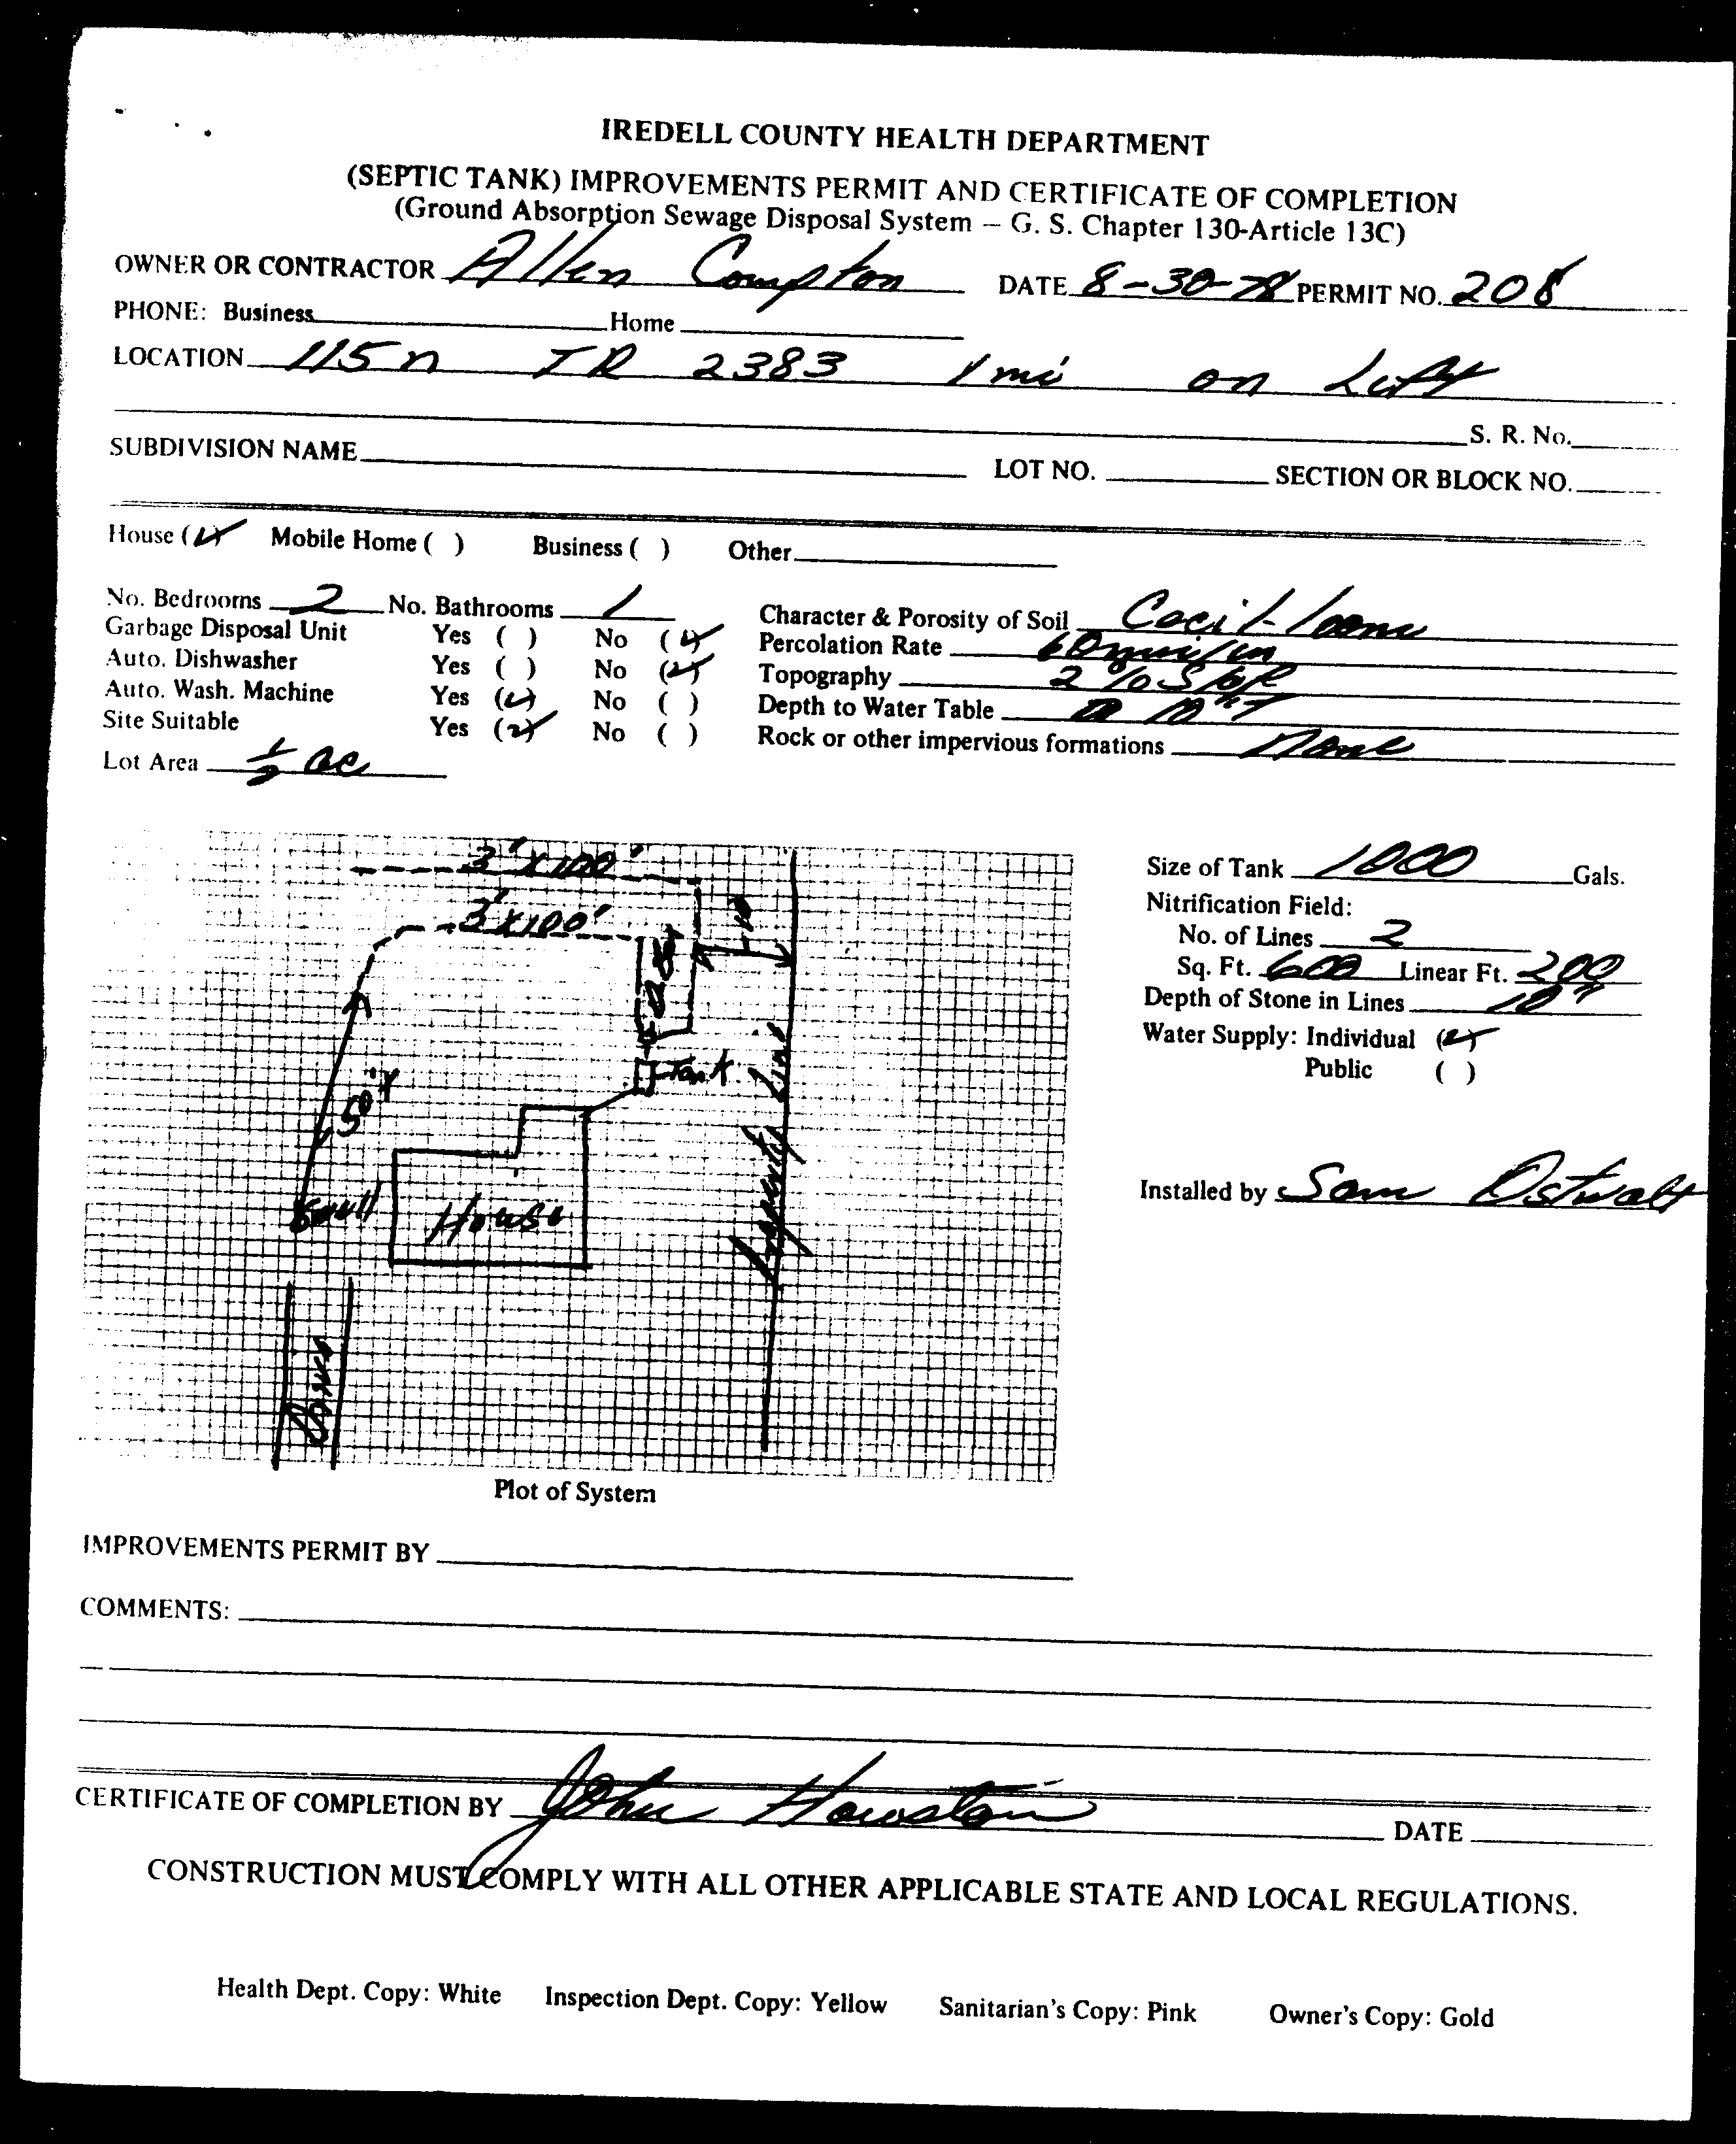 IREDELL COUNTY HEALTH DEPARTMENT
(SEPTIC TANK) IMPROVEMENTS PERMIT AND CERTIFICATE OF COMPLETION
(Ground Absorption Sewage Disposal System – G. S. Chapter 130-Article 13C)
OWNER OR CONTRACTOR Allen Compton DATE 8-30-78 PERMIT NO. 208
PHONE: Business Home
LOCATION 115 n TR 2383 1 mi on Left
S. R. No.
SUBDIVISION NAME LOT NO. SECTION OR BLOCK NO.
House (✓) Mobile Home ( ) Business ( ) Other
No. Bedrooms 2 No. Bathrooms 1 Character & Porosity of Soil Cecil-loam
Garbage Disposal Unit Yes ( ) No (✓) Percolation Rate 60 min/in
Auto. Dishwasher Yes ( ) No (✓) Topography 2% Slope
Auto. Wash. Machine Yes (✓) No ( ) Depth to Water Table 10
Site Suitable Yes (✓) No ( ) Rock or other impervious formations None
Lot Area 1/2 ac
3' X 100'
3' X 100'
10
Tank
50'+
Well
House
Property Line
Drive
Size of Tank 1000 Gals.
Nitrification Field:
No. of Lines 2
Sq. Ft. 600 Linear Ft. 200
Depth of Stone in Lines 10"
Water Supply: Individual (✓)
Public ( )
Installed by Sam Ostwalt
Plot of System
IMPROVEMENTS PERMIT BY
COMMENTS:
CERTIFICATE OF COMPLETION BY John Howston DATE
CONSTRUCTION MUST COMPLY WITH ALL OTHER APPLICABLE STATE AND LOCAL REGULATIONS.
Health Dept. Copy: White Inspection Dept. Copy: Yellow Sanitarian's Copy: Pink Owner's Copy: Gold